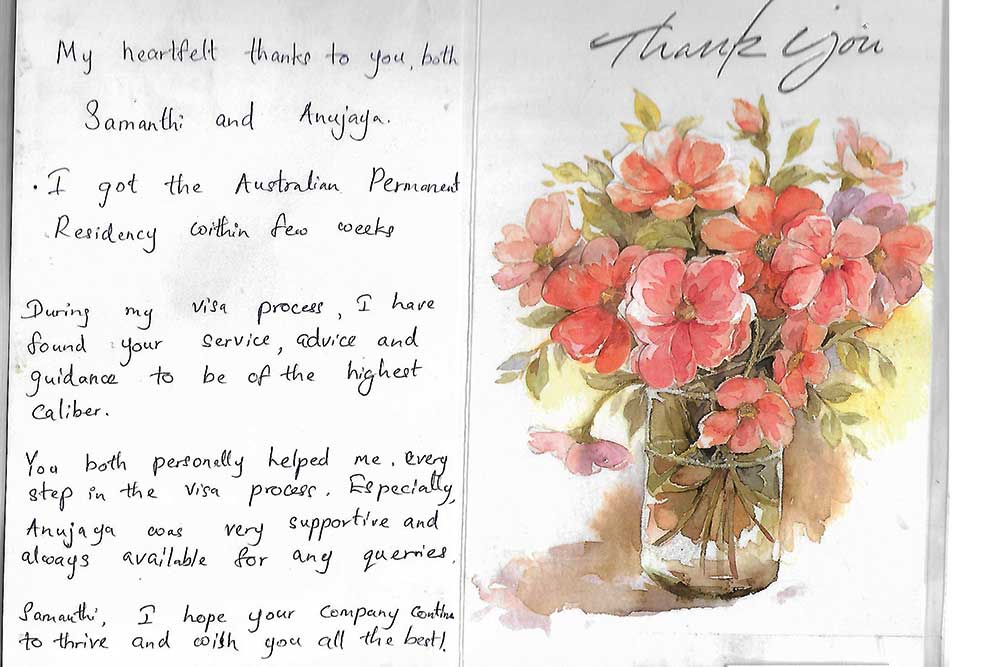 My heartfelt thanks to you, both
Samanthi and Anujaya.
. I got the Australian Permanent
Residency within few weeks
During my visa process, I have
found your service, advice and
guidance to be of the highest
caliber.
You both personally helped me. every
step in the visa process. Especially,
Anujaya was very supportive and
always available for any querries.
Samanthi, I hope your company continu
to thrive and wish you all the best!.
Thank you